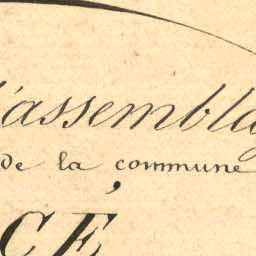 l'assembla
de la commune
CÉ